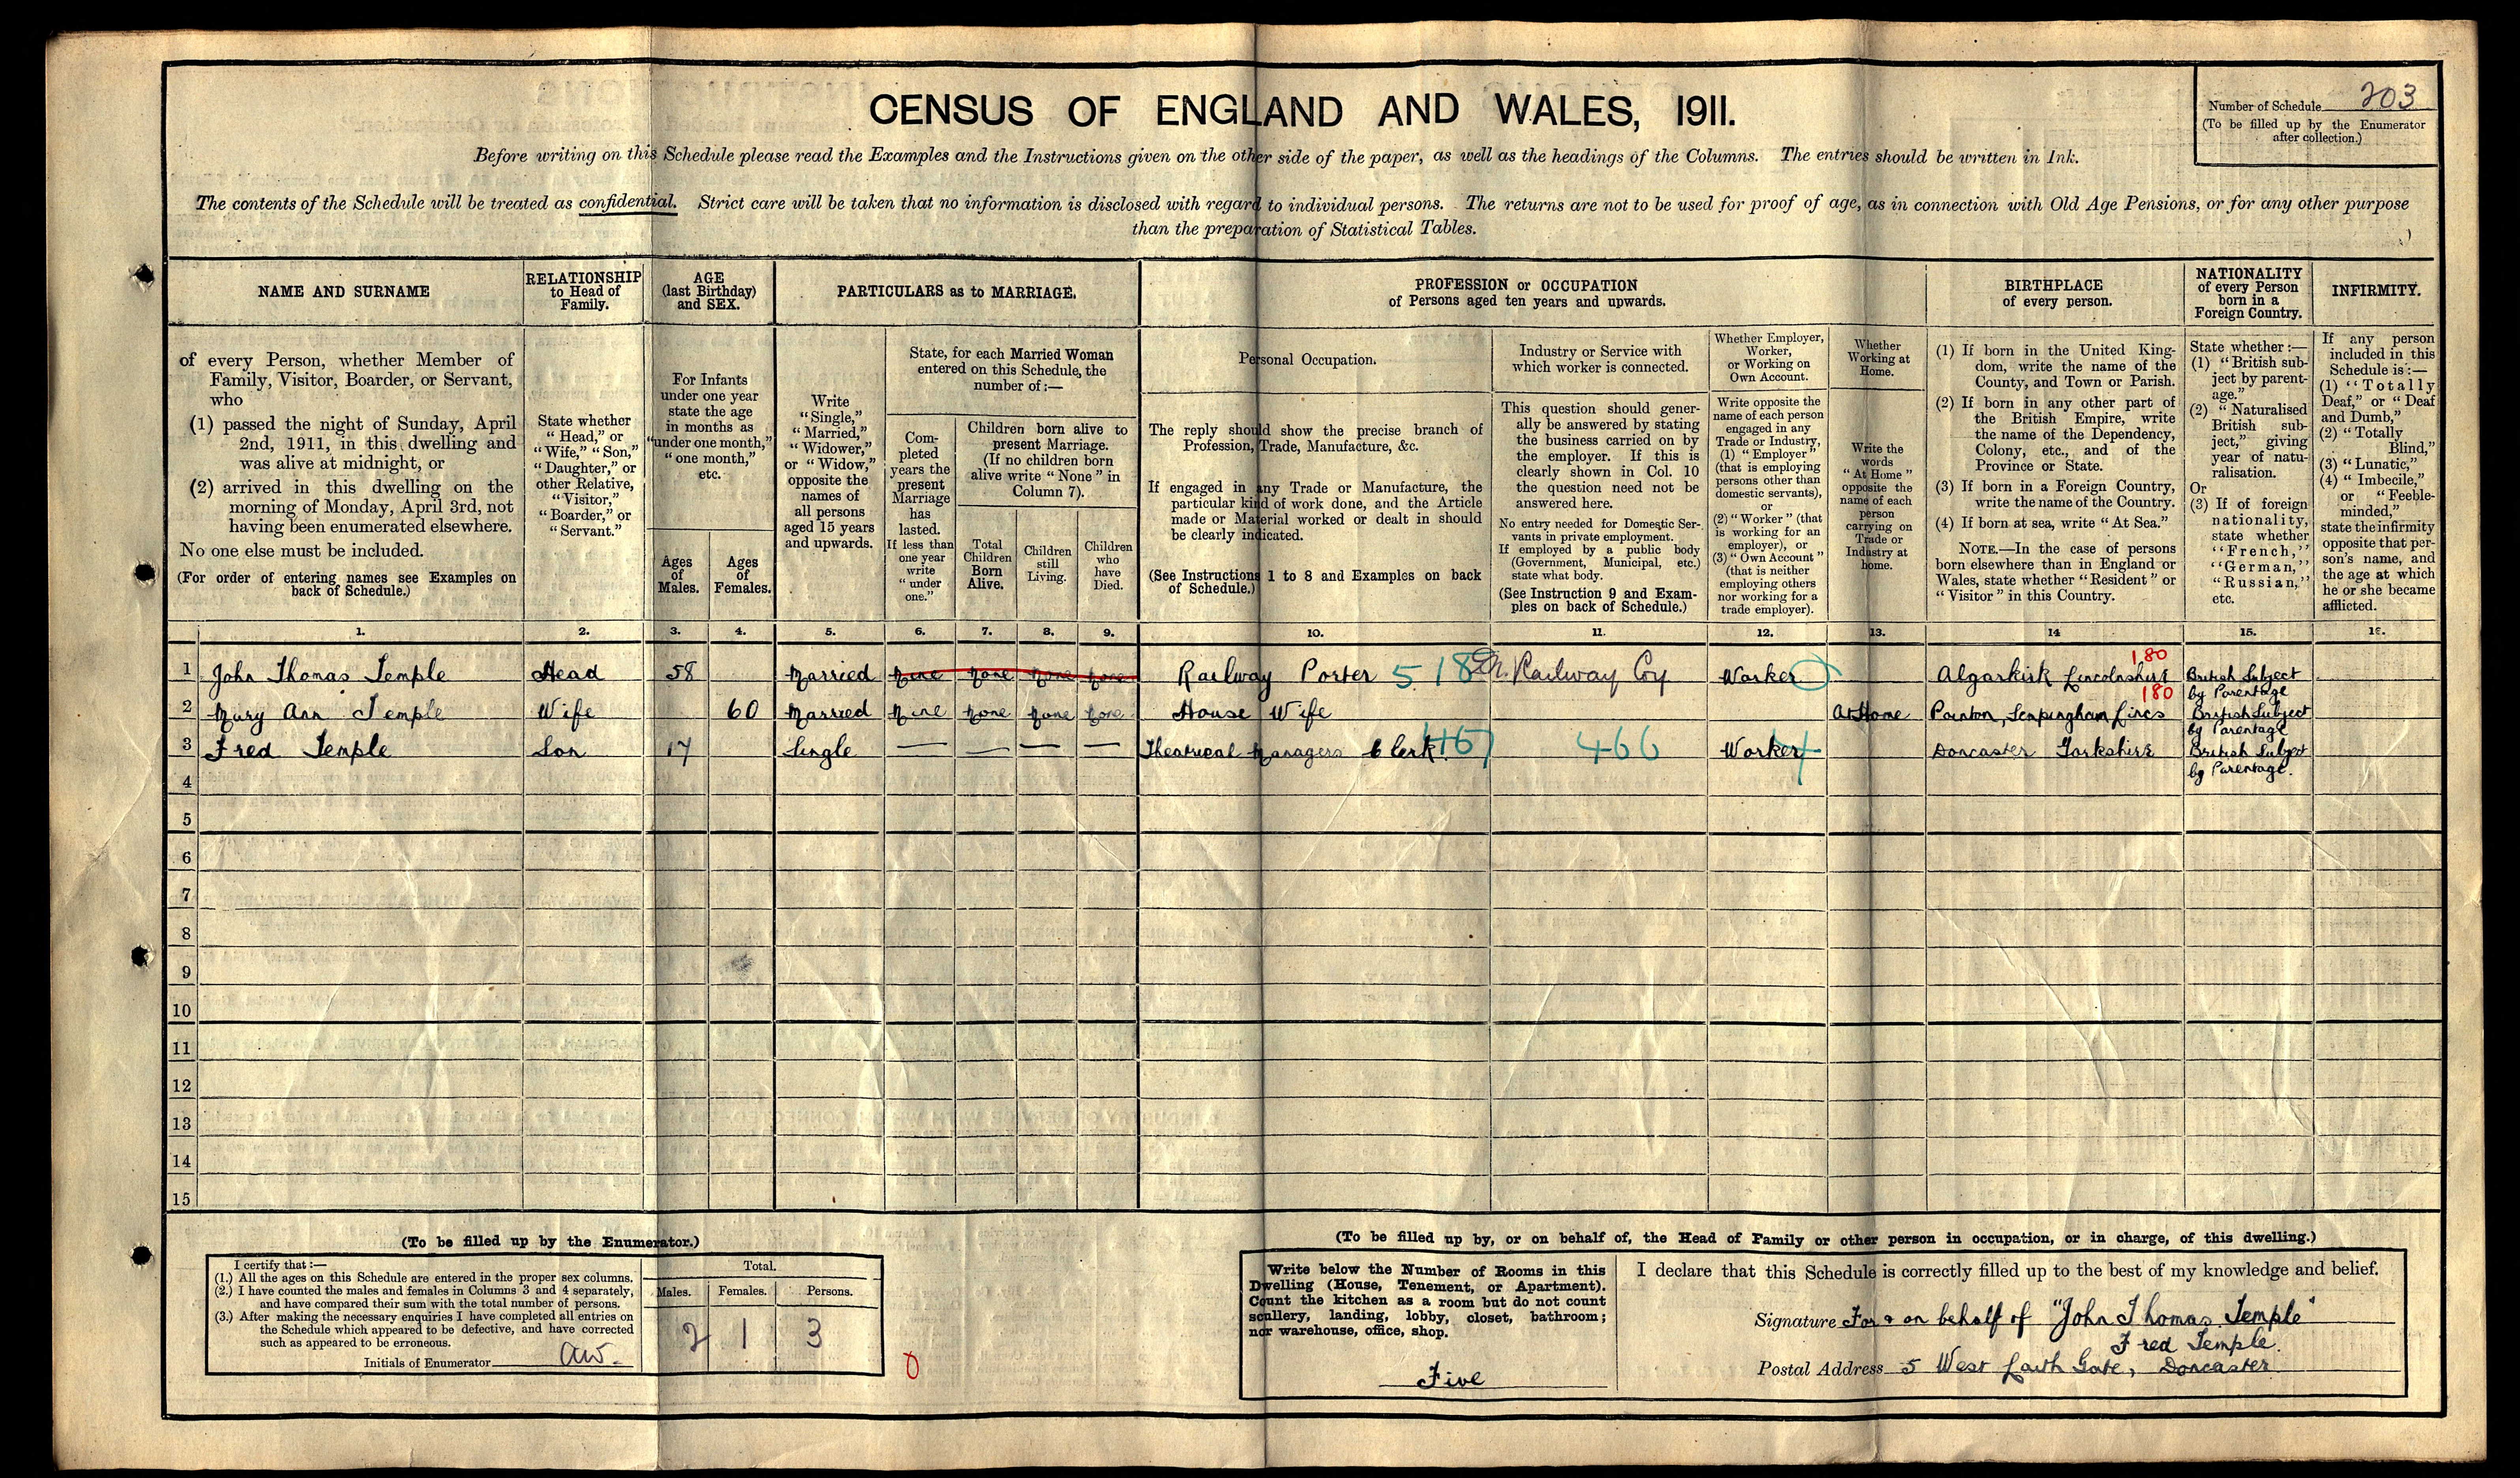 CENSUS OF ENGLAND AND WALES, 1911.
Number of Schedule 203
(To be filled up by the Enumerator
after collection.)
Before writing on this Schedule please read the Examples and the Instructions given on the other side of the paper, as well as the headings of the Columns. The entries should be written in Ink.
The contents of the Schedule will be treated as confidential. Strict care will be taken that no information is disclosed with regard to individual persons. The returns are not to be used for proof of age, as in connection with Old Age Pensions, or for any other purpose
than the preparation of Statistical Tables.
NAME AND SURNAME
of every Person, whether Member of
Family, Visitor, Boarder, or Servant,
who
(1) passed the night of Sunday, April
2nd, 1911, in this dwelling and
was alive at midnight, or
(2) arrived in this dwelling on the
morning of Monday, April 3rd, not
having been enumerated elsewhere.
No one else must be included.
(For order of entering names see Examples on
back of Schedule.)
RELATIONSHIP
to Head of
Family.
State whether
"Head," or
"Wife," "Son,"
"Daughter," or
other Relative,
"Visitor,"
"Boarder," or
"Servant."
AGE
(last Birthday)
and SEX.
For Infants
under one year
state the age
in months as
"under one month,"
"one month,"
etc.
Ages
of
Males.
Ages
of
Females.
PARTICULARS as to MARRIAGE.
Write
"Single,"
"Married,"
"Widower,"
or "Widow,"
opposite the
names of
all persons
aged 15 years
and upwards.
State, for each Married Woman
entered on this Schedule, the
number of:—
Com-
pleted
years the
present
Marriage
has
lasted.
If less than
one year
write
"under
one."
Children born alive to
present Marriage.
(If no children born
alive write "None" in
Column 7).
Total
Children
Born
Alive.
Children
still
Living.
Children
who
have
Died.
PROFESSION or OCCUPATION
of Persons aged ten years and upwards.
Personal Occupation.
The reply should show the precise branch of
Profession, Trade, Manufacture, &c.
If engaged in any Trade or Manufacture, the
particular kind of work done, and the Article
made or Material worked or dealt in should
be clearly indicated.
(See Instructions 1 to 8 and Examples on back
of Schedule.)
Industry or Service with
which worker is connected.
This question should gener-
ally be answered by stating
the business carried on by
the employer. If this is
clearly shown in Col. 10
the question need not be
answered here.
No entry needed for Domestic Ser-
vants in private employment.
If employed by a public body
(Government, Municipal, etc.)
state what body.
(See Instruction 9 and Exam-
ples on back of Schedule.)
Whether Employer,
Worker,
or Working on
Own Account.
Write opposite the
name of each person
engaged in any
Trade or Industry,
(1) "Employer"
(that is employing
persons other than
domestic servants),
or
(2) "Worker" (that
is working for an
employer), or
(3) "Own Account"
(that is neither
employing others
nor working for a
trade employer).
Whether
Working at
Home.
Write the
words
"At Home"
opposite the
name of each
person
carrying on
Trade or
Industry at
home.
BIRTHPLACE
of every person.
(1) If born in the United King-
dom, write the name of the
County, and Town or Parish.
(2) If born in any other part of
the British Empire, write
the name of the Dependency,
Colony, etc., and of the
Province or State.
(3) If born in a Foreign Country,
write the name of the Country.
(4) If born at sea, write "At Sea."
NOTE.—In the case of persons
born elsewhere than in England or
Wales, state whether "Resident" or
"Visitor" in this Country.
NATIONALITY
of every Person
born in a
Foreign Country.
State whether :—
(1) "British sub-
ject by parent-
age."
(2) "Naturalised
British sub-
ject," giving
year of natu-
ralisation.
Or
(3) If of foreign
nationality,
state whether
"French,"
"German,"
"Russian,"
etc.
INFIRMITY.
If any person
included in this
Schedule is:—
(1) "Totally
Deaf," or "Deaf
and Dumb,"
(2) "Totally
Blind,"
(3) "Lunatic,"
(4) "Imbecile,"
or "Feeble-
minded,"
state the infirmity
opposite that per-
son's name, and
the age at which
he or she became
afflicted.
1. 2. 3. 4. 5. 6. 7. 8. 9. 10. 11. 12. 13. 14 15. 16.
180
1 John Thomas Temple Head 58 Married None None None Railway Porter 518 Railway Coy Worker Algarkirk Lincolnshire British Subject
by Parentage
180
2 Mary Ann Temple Wife 60 Married None None None House Wife At Home Pointon, Sempingham Lincs British Subject
by Parentage
3 Fred Temple Son 17 Single — — — — Theatrical Managers Clerk 467 466 Worker Doncaster Yorkshire British Subject
by Parentage.
4
5
6
7
8
9
10
11
12
13
14
15
(To be filled up by the Enumerator.)
I certify that:—
(1.) All the ages on this Schedule are entered in the proper sex columns.
(2.) I have counted the males and females in Columns 3 and 4 separately,
and have compared their sum with the total number of persons.
(3.) After making the necessary enquiries I have completed all entries on
the Schedule which appeared to be defective, and have corrected
such as appeared to be erroneous.
Initials of Enumerator AW.
Total.
Males. Females. Persons.
2 1 3
0
(To be filled up by, or on behalf of, the Head of Family or other person in occupation, or in charge, of this dwelling.)
Write below the Number of Rooms in this
Dwelling (House, Tenement, or Apartment).
Count the kitchen as a room but do not count
scullery, landing, lobby, closet, bathroom;
nor warehouse, office, shop.
Five
I declare that this Schedule is correctly filled up to the best of my knowledge and belief.
Signature For & on behalf of "John Thomas Temple"
Fred Temple.
Postal Address 5 West Laith Gate, Doncaster